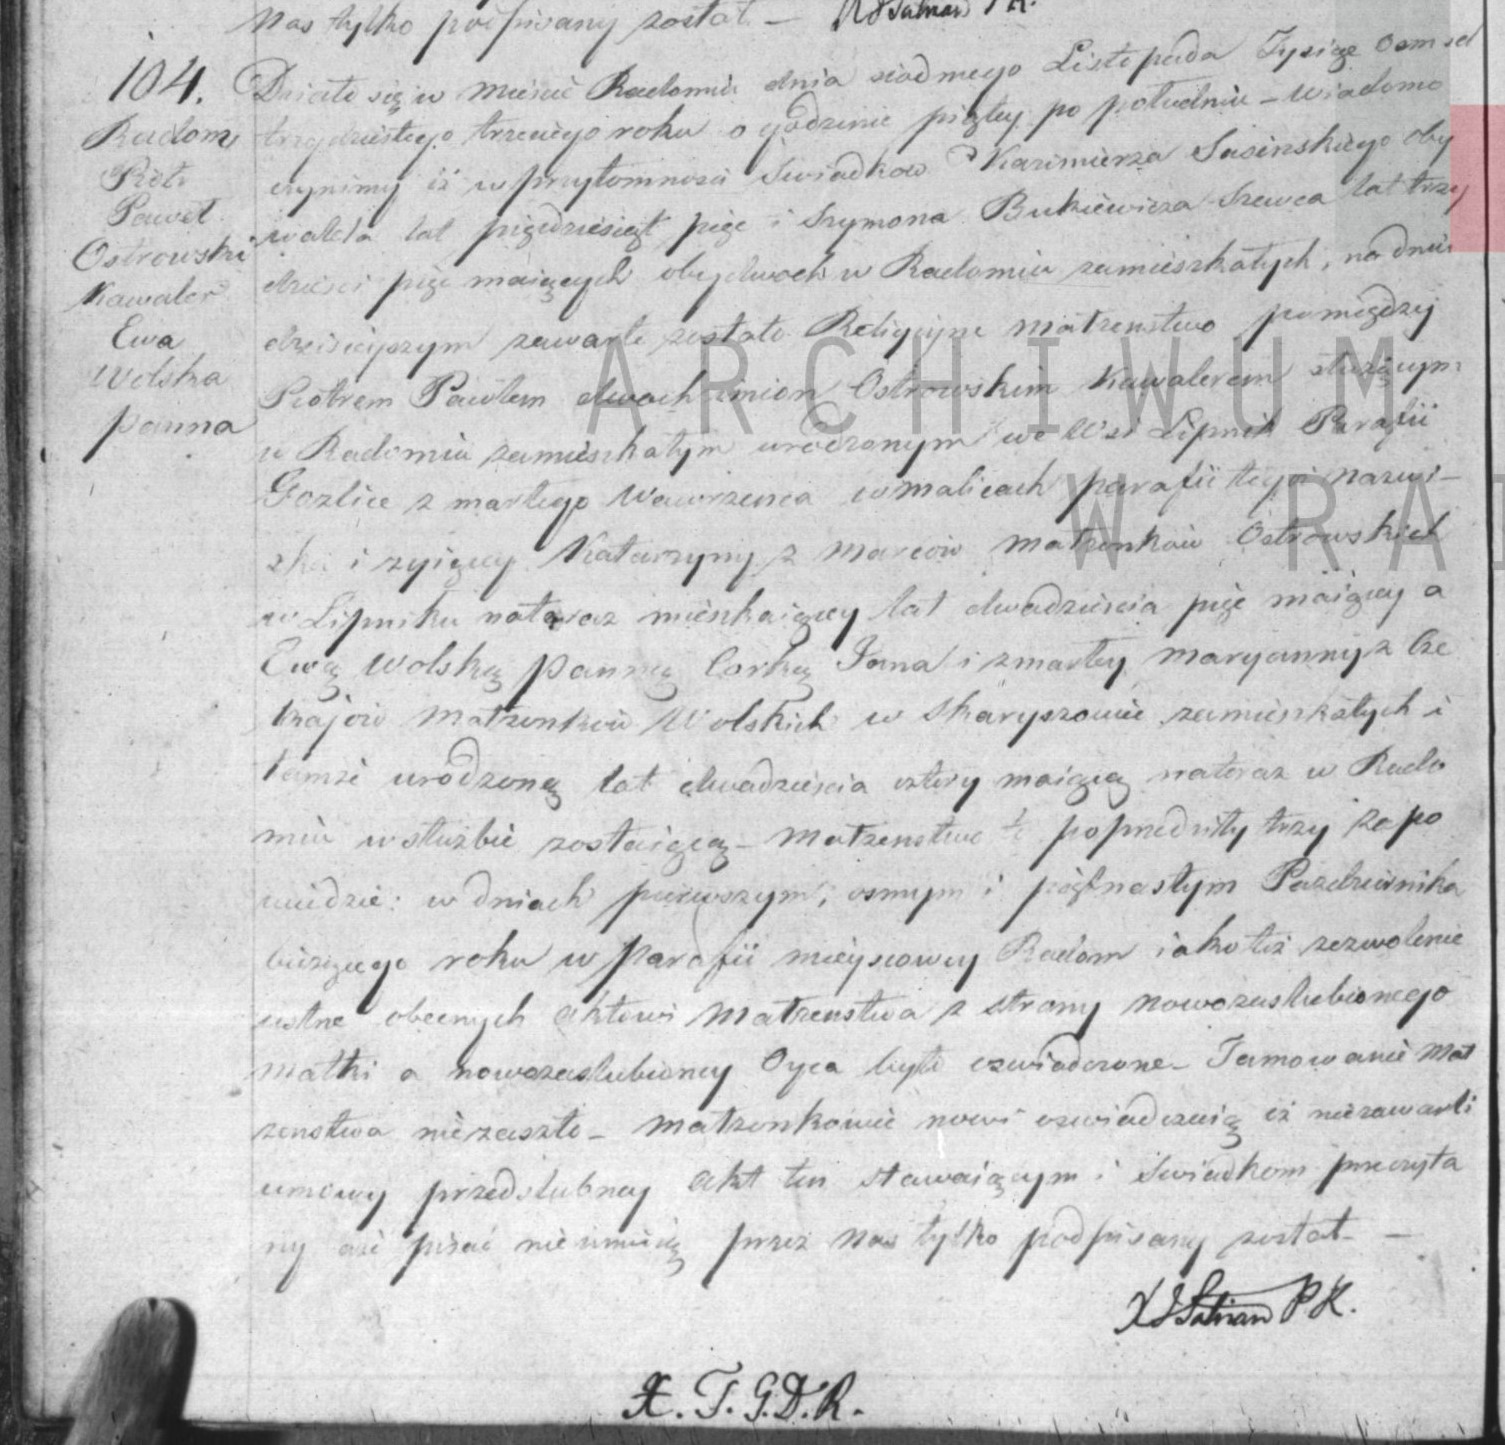 Nas tylko podpisany został —
104.
Radom
Piotr
Paweł
Ostrowski
Kawaler
Ewa
Wolska
panna
Działo się w Mieście Radomiu dnia siodmego Listopada Tysiąc osmset
trzydziestego trzeciego roku o godzinie piątey po południu – Wiadomo
czynimy iż w przytomności Swiadkow Kazimierza Sasinskiego oby
watela lat pięćdziesiąt pięc i Szymona Bukiewicza Szewca lat trzy
dzieści pięc maiących obydwoch w Radomiu zamieszkałych, na dniu
dzisieyszym zawarte zostało Religiyne Małzenstwo pomiędzy
Piotrem Pawłem dwoch imion Ostrowskim Kawalerem służącym
w Radomiu zamieszkałym urodzonym we Wsi Lipnik Parafii
Gozlice z marłego Wawrzenca w Malicach parafii tegoż nazwi-
ska i zyiącey Katarzyny z Marcow Małzonkow Ostrowskich
w Lipniku na teraz mieszkaiącey lat dwadzieścia pięc maiący a
Ewą Wolską Panną Corką Jana i zmarłey Maryanny z Cze
kajow Małzonkow Wolskich w Skaryszowie zamieszkałych i
tamże urodzoną lat dwadzieścia cztery maiącą na teraz w Rado
miu w służbie zostaiącą – Małzenstwo to poprzedziły trzy zapo
wiedzie: w dniach pierwszym, osmym i piętnastym Pazdziernika
bieżącego roku w Parafii mieyscowey Radom iako też zezwolenie
ustne obecnych aktowi Małzenstwa z strony Nowozaslubionego
Matki a nowozaslubioney Oyca było oswiadczone – Tamowanie Mał
zenstwa nie zaszło – Małzonkowie nowi oswiadczaią iż nie zawarli
umowy przedslubney Akt ten stawaiącym i Swiadkom przeczyta
ny ani pisać nie umieią przez Nas tylko podpisany został –
P K.
X. T. G. D. R.
ARCHIWUM
W RA